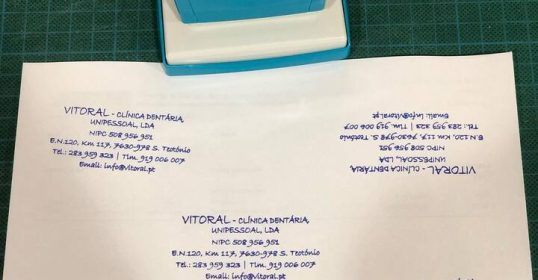 VITORAL - CLÍNICA DENTÁRIA,
UNIPESSOAL, LDA
NIPC 508 956 951
E.N.120, Km 117, 7630-978 S. Teotónio
Tel.: 283 959 323 | Tlm. 919 006 007
Email: info@vitoral.pt
VITORAL - CLÍNICA DENTÁRIA
UNIPESSOAL, LDA
NIPC 508 956 951
E.N.120, Km 117, 7630-978 S. Teotónio
Tel.: 283 959 323 | Tlm. 919 006 007
Email: info@vitoral.pt
VITORAL - CLÍNICA DENTÁRIA,
UNIPESSOAL, LDA
NIPC 508 956 951
E.N.120, Km 117, 7630-978 S. Teotónio
Tel.: 283 959 323 | Tlm. 919 006 007
Email: info@vitoral.pt